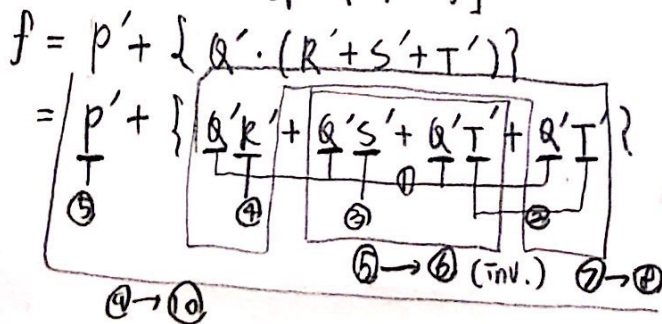 f = p' + { Q'·(R'+S'+T') }
= p' + { Q'R' + Q'S' + Q'T' + Q'T' }
①
⑤ ④ ③ ②
⑤ → ⑥ (inv.) ⑦ → ⑧
⑨ → ⑩